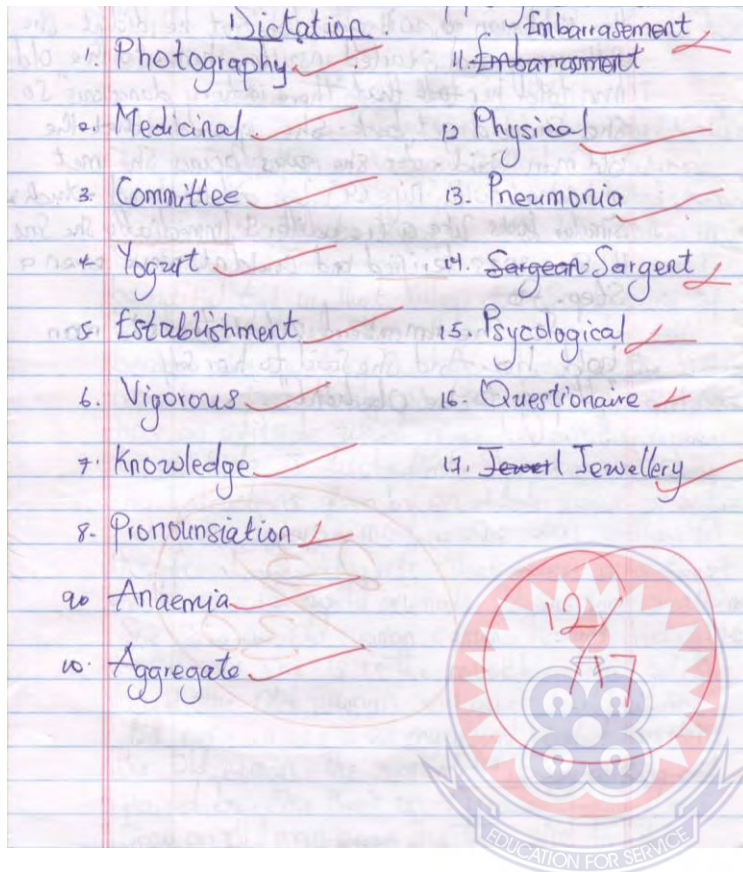 Dictation.
Photography.
2. Medicinal.
3. Committee
4. Yogurt
5. Establishment
6. Vigorous
7. Knowledge
8. Pronounsiation
9. Anaemia
10. Aggregate
11. Embarrasment
Embarrasement
12. Physical
13. Pneumonia
14. Sargean Sargent
15. Psycological
16. Questionaire
17. Jewerl Jewellery
12/17
EDUCATION FOR SERVICE